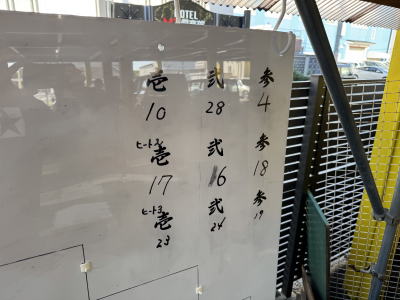 OTEL
壱 弐 参
10 28 4
ヒート3 壱 弐 参
17 16 18
ヒート3 壱 弐 参
23 24 19